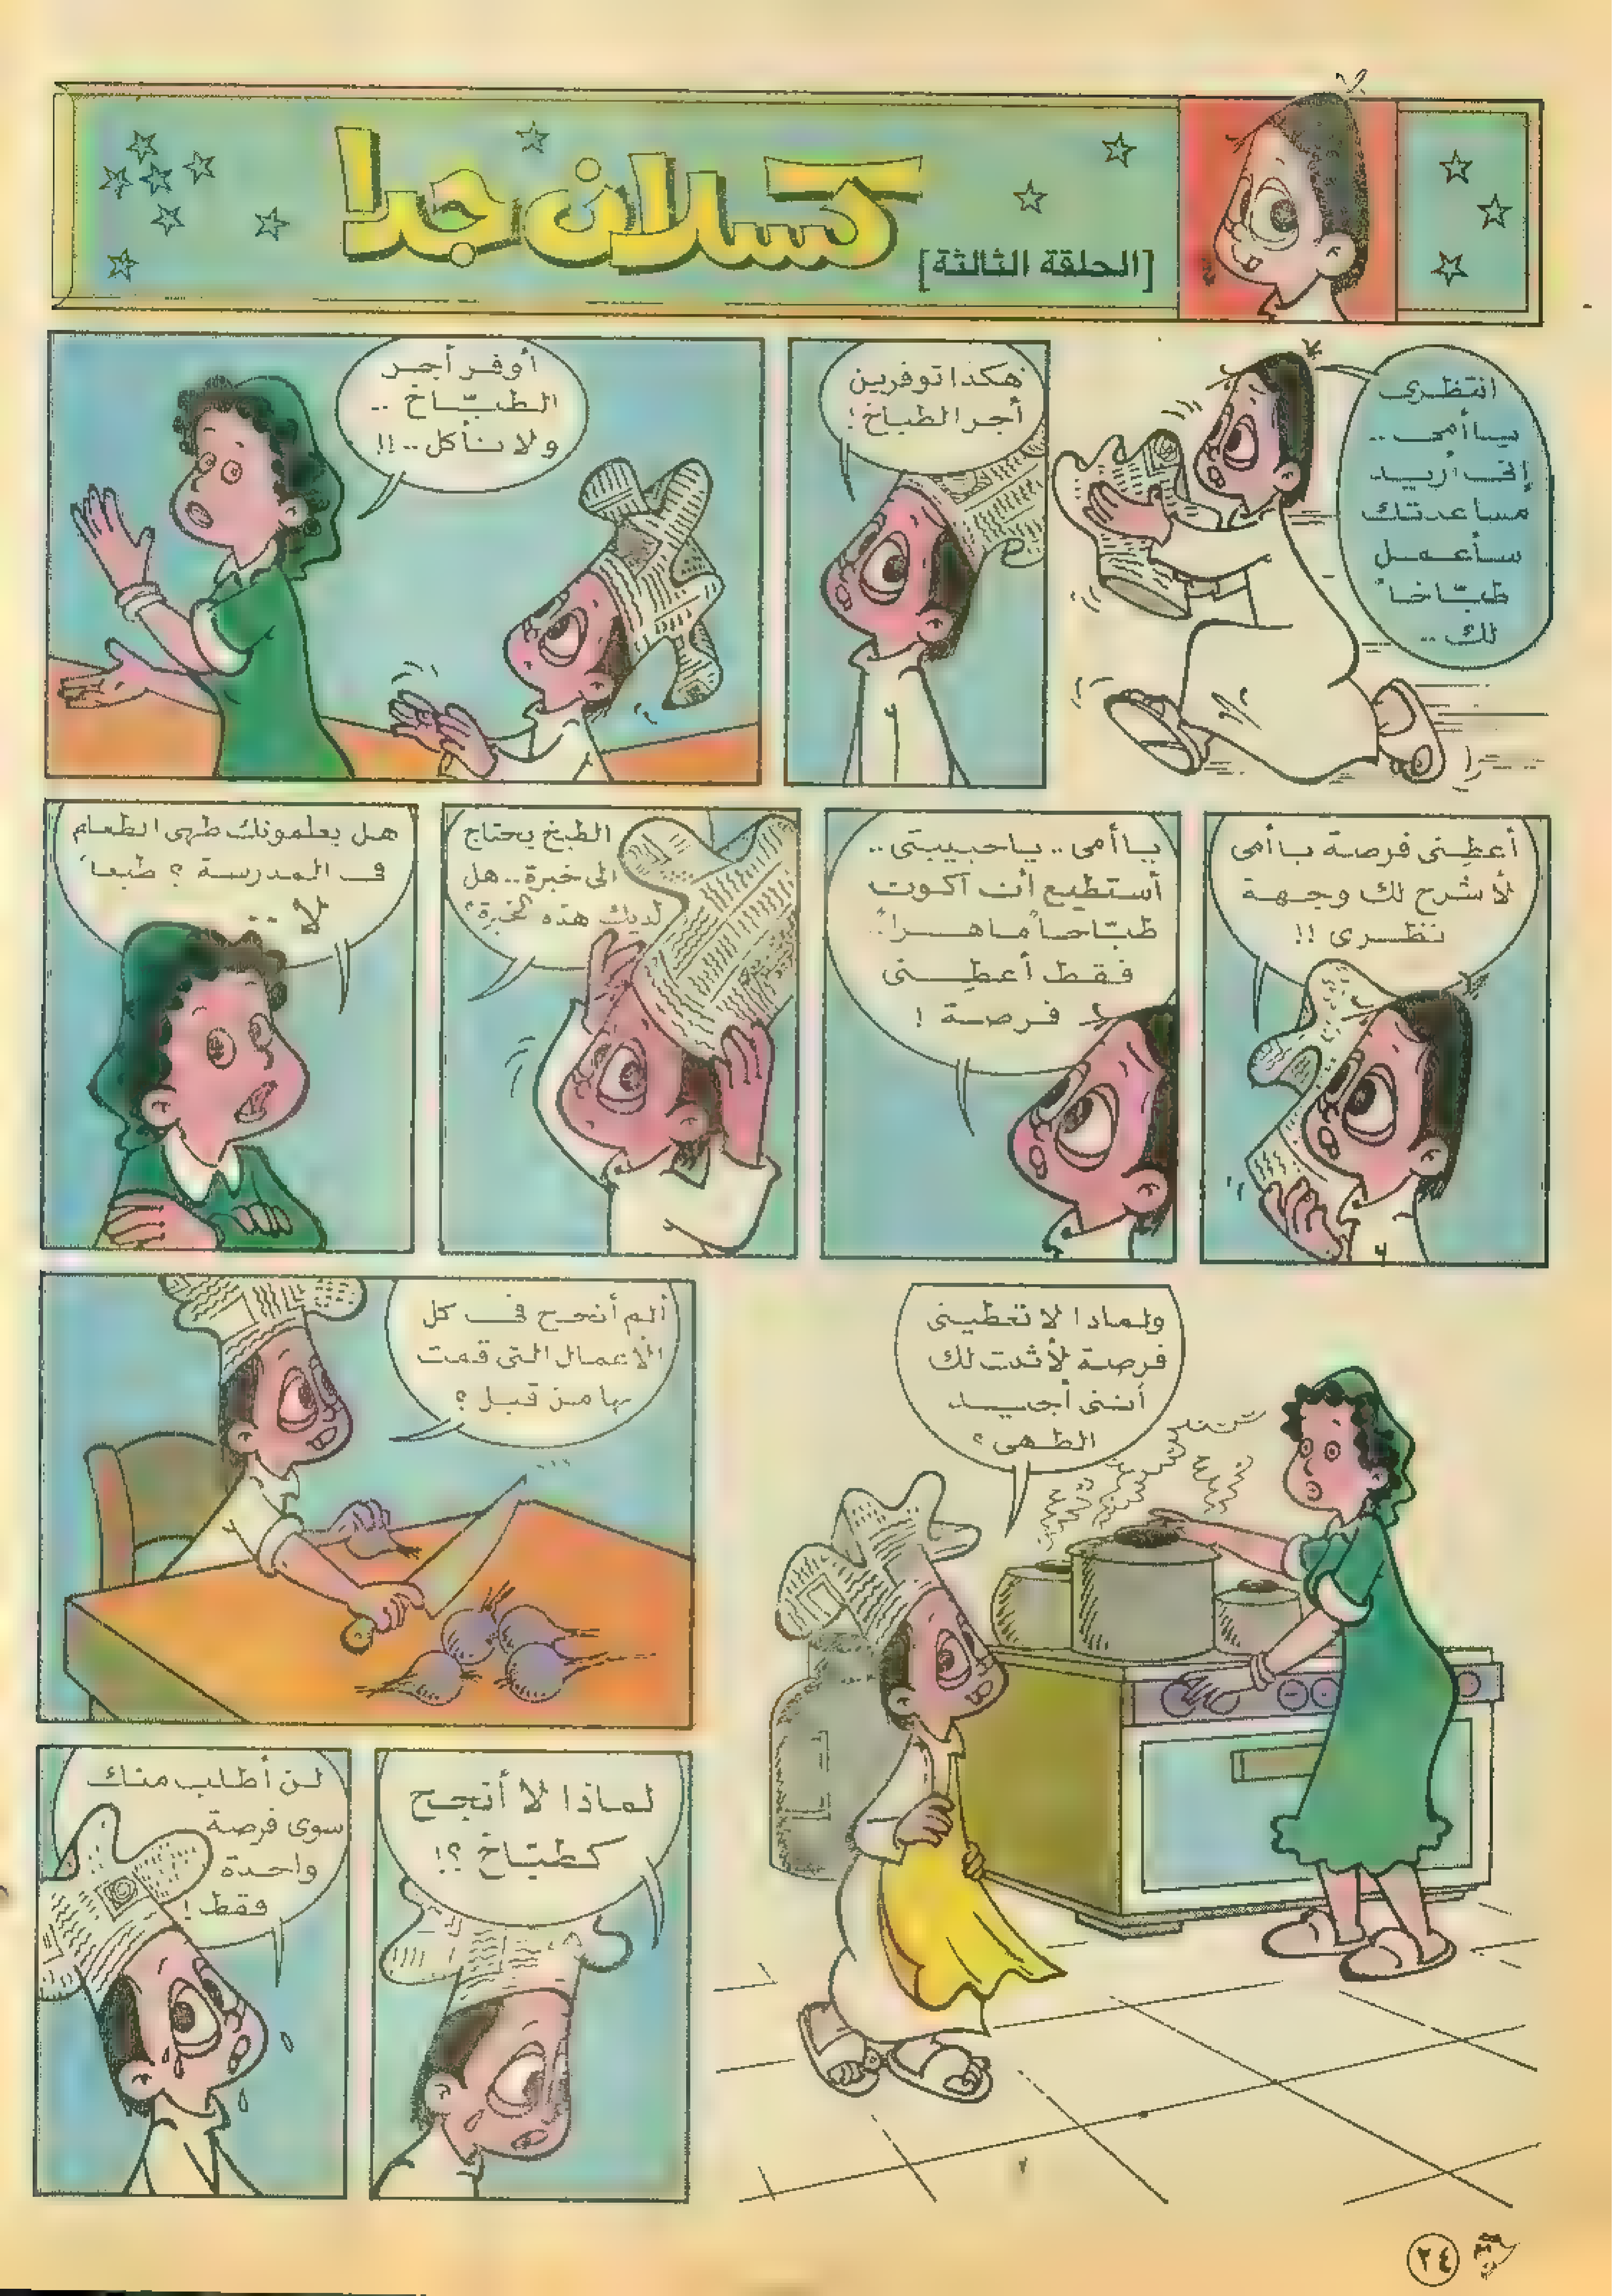 كسلان جدا
[الحلقة الثالثة]
انتظرى
يا أمى ..
إنى أريد
مساعدتك
سأعمل
طبّاخاً
لك ..
هكذا توفرين
أجر الطباخ !
أوفر أجر
الطبّاخ ..
ولا نأكل .. !!
أعطنى فرصة يا أمى
لأشرح لك وجهة
نظرى !!
يا أمى .. يا حبيبتى ..
أستطيع أن أكون
طبّاخاً ماهراً ..
فقط أعطنى
فرصة !
الطبخ يحتاج
الى خبرة .. هل
لديك هذه الخبرة ؟
هل يعلمونك طهى الطعام
فى المدرسة ؟ طبعاً
لا ..
ولماذا لا تعطينى
فرصة لأثبت لك
أننى أجيد
الطهى ؟
ألم أنجح فى كل
الأعمال التى قمت
بها من قبل ؟
لماذا لا أنجح
كطبّاخ ؟!
لن أطلب منك
سوى فرصة
واحدة
فقط !
٢٤